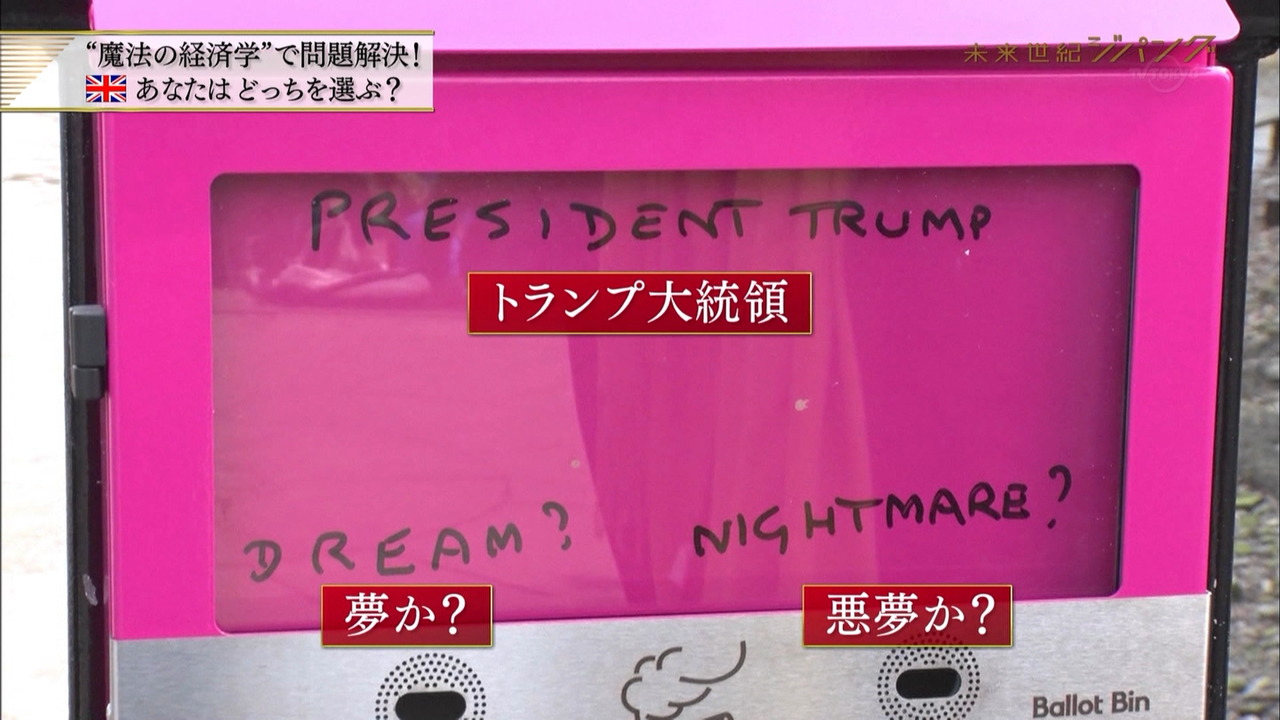 “魔法の経済学”で問題解決！
あなたは どっちを選ぶ？
未来世紀ジパング
TV TOKYO
PRESIDENT TRUMP
トランプ大統領
DREAM?
NIGHTMARE?
夢か？
悪夢か？
Ballot Bin